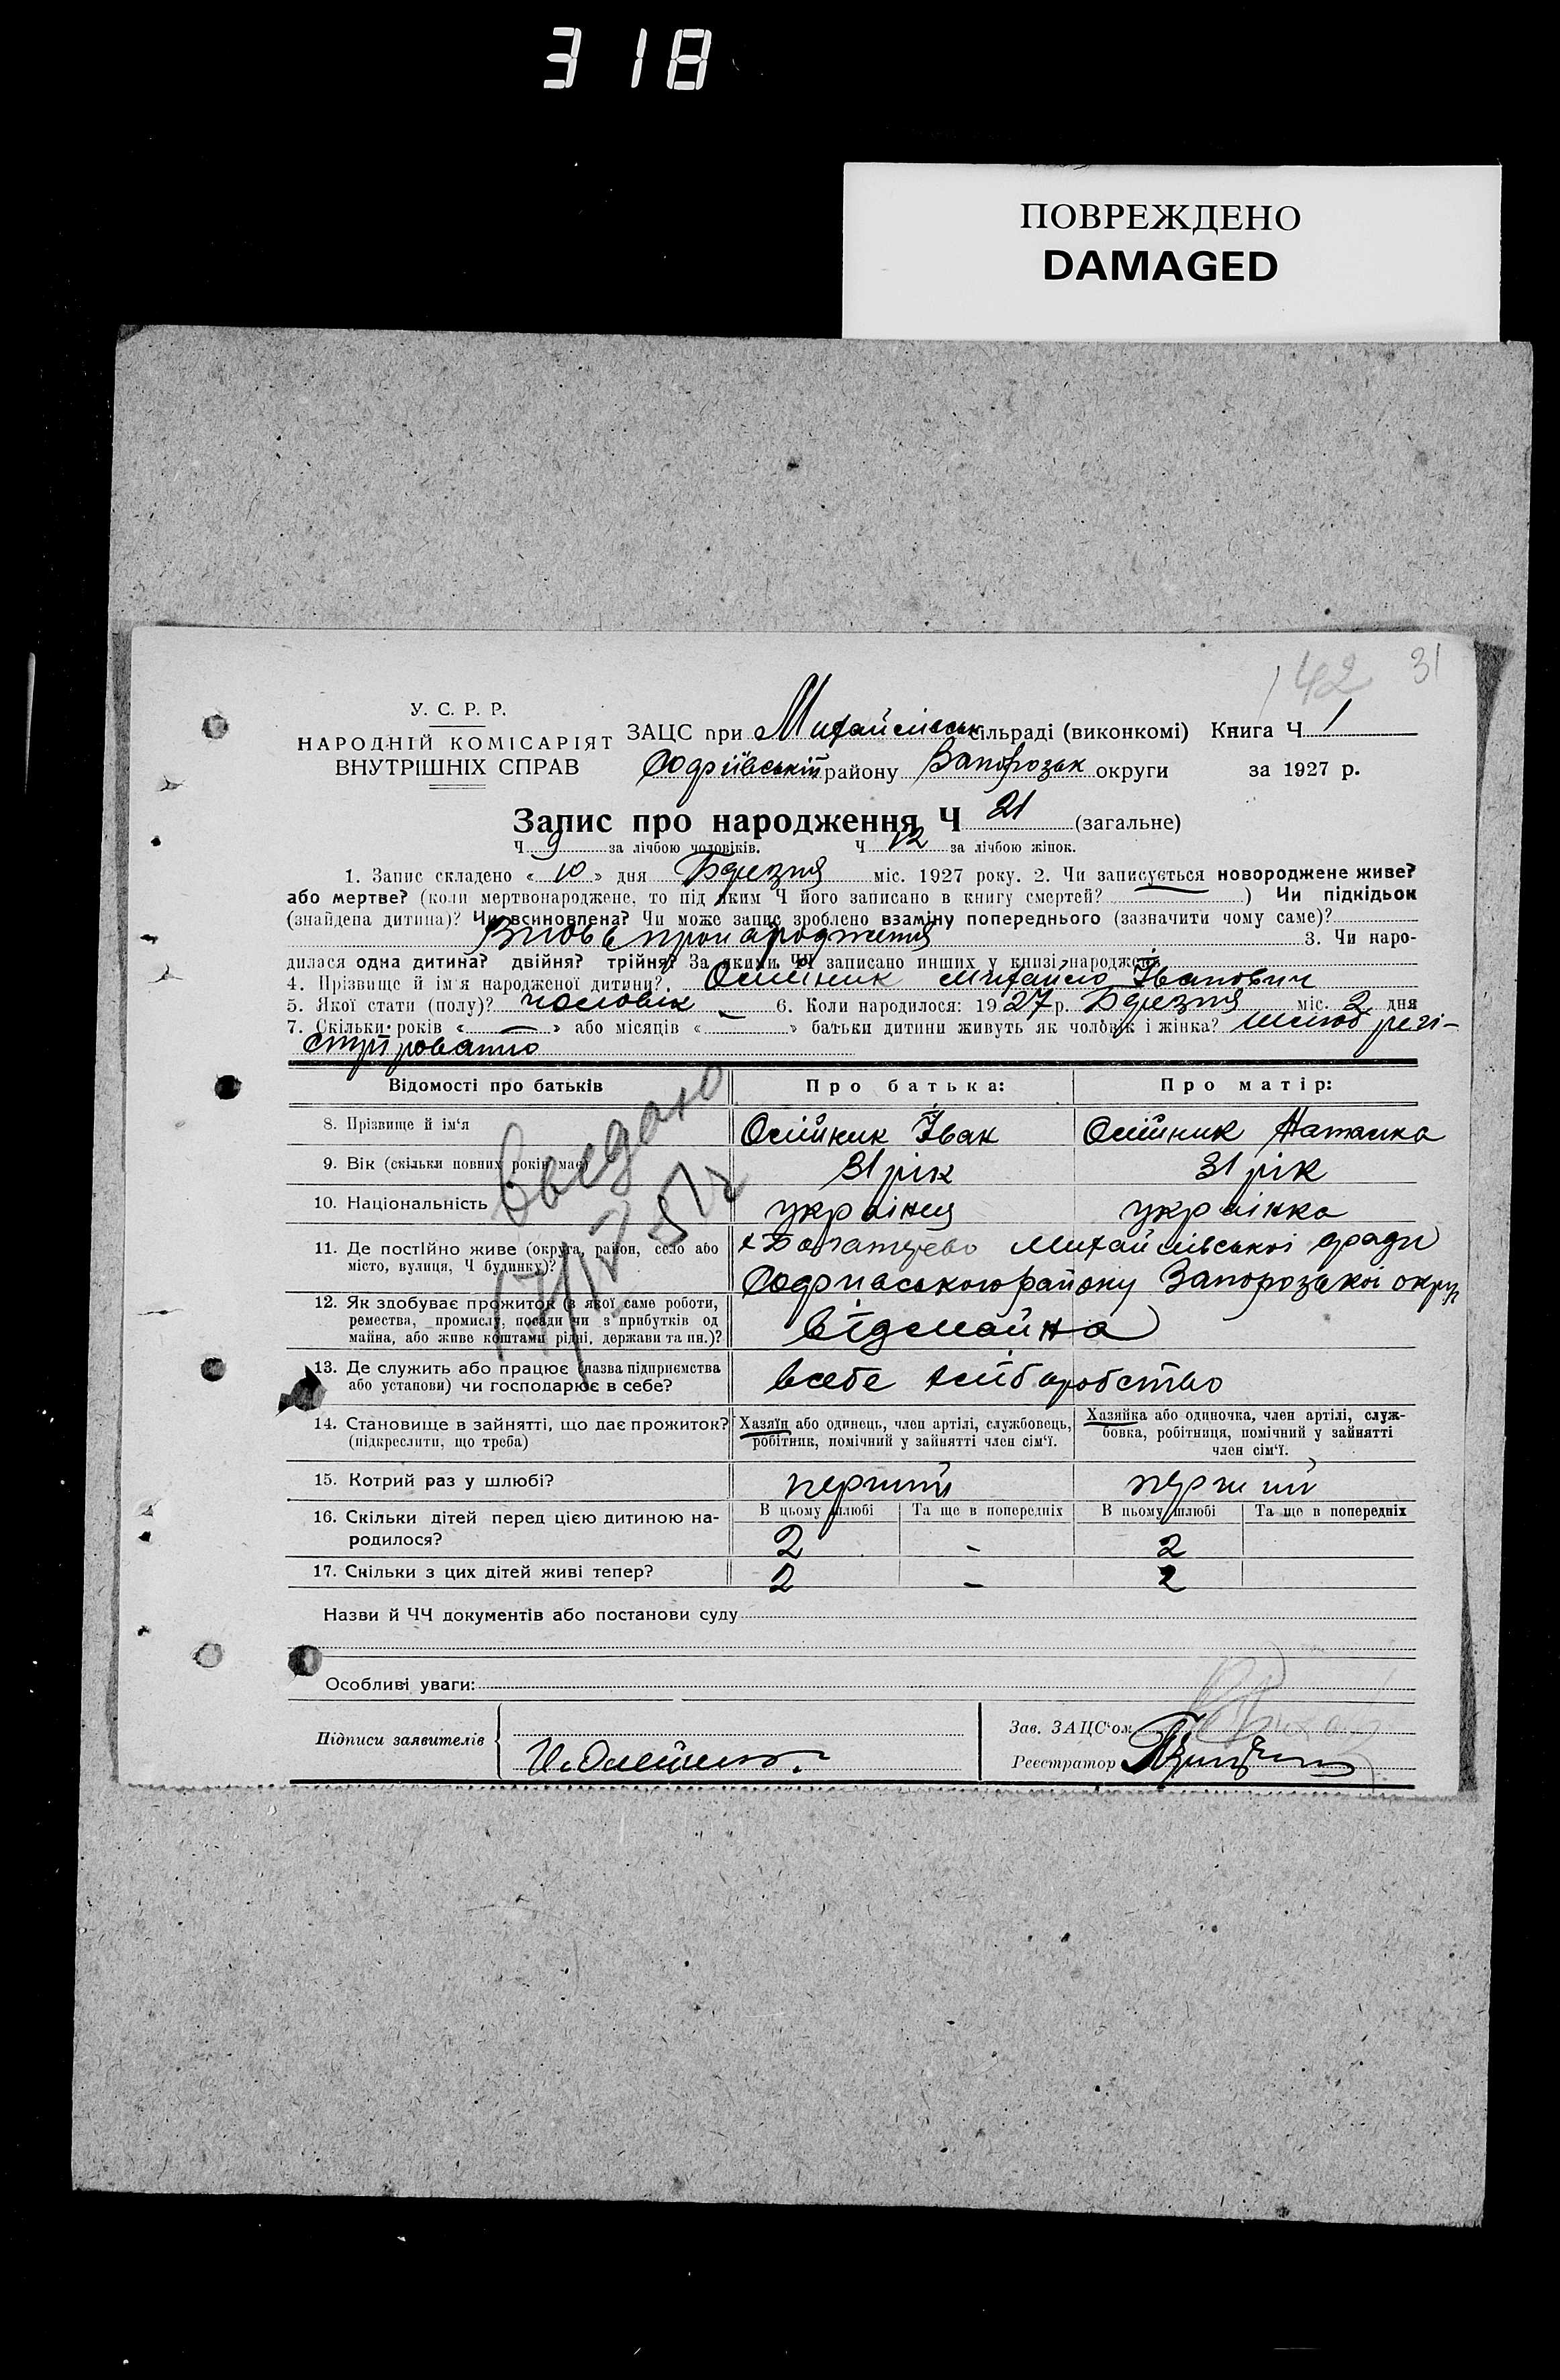 318
ПОВРЕЖДЕНО
DAMAGED
142 31
У. С. Р. Р.
НАРОДНІЙ КОМІСАРІЯТ
ВНУТРІШНІХ СПРАВ
ЗАЦС при Михайлівськ сільраді (виконкомі) Книга Ч 1
Софіївській району Запорозьк округи за 1927 р.
Запис про народження Ч 21 (загальне)
Ч 9 за лічбою чоловіків. Ч 12 за лічбою жінок.
1. Запис складено « 10 » дня Березня міс. 1927 року. 2. Чи записується новороджене живе?
або мертве? (коли мертвонароджене, то під яким Ч його записано в книгу смертей? ) Чи підкідьок
(знайдена дитина)? Чи всиновлена? Чи може запис зроблено взаміну попереднього (зазначити чому саме)?
Вновь пронародження 3. Чи наро-
дилася одна дитина? двійня? трійня? За якими ЧЧ записано инших у книзі народжень
4. Прізвище й ім'я народженої дитини? Олійник Михайло Іванович
5. Якої стати (полу)? чоловік 6. Коли народилося: 1927 р. Березня міс. 2 дня
7. Скільки років « — » або місяців « » батьки дитини живуть як чоловік і жінка? шлюб регі-
стріровано
Відомості про батьків Про батька: Про матір:
8. Прізвище й ім'я Олійник Іван Олійник Наталка
9. Вік (скільки повних років має) 31 рік 31 рік
10. Національність українец українка
11. Де постійно живе (округа, район, село або
місто, вулиця, Ч будинку)?
Михайлівської
району Запорозької окру
12. Як здобуває прожиток (з якої саме роботи,
ремества, промислу, посади чи з прибутків од
майна, або живе коштами рідні, держави та ин.)?
відмайна
13. Де служить або працює (назва підприємства
або установи) чи господарює в себе?
всебе хліборобство
14. Становище в зайнятті, що дає прожиток?
(підкреслити, що треба)
Хазяїн або одинець, член артілі, службовець,
робітник, помічний у зайнятті член сім'ї.
Хазяйка або одиночка, член артілі, служ-
бовка, робітниця, помічний у зайнятті
член сім'ї.
15. Котрий раз у шлюбі? перший перший
16. Скільки дітей перед цією дитиною на-
родилося?
В цьому шлюбі Та ще в попередніх В цьому шлюбі Та ще в попередніх
2 - 2
17. Скільки з цих дітей живі тепер? 2 - 2
Назви й ЧЧ документів або постанови суду
Особливі уваги:
Підписи заявителів
Зав. ЗАЦС'ом
Реєстратор